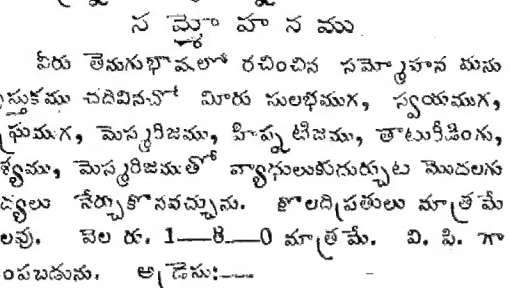 సమ్మోహనము
వీరు తెనుగుభాషలో రచించిన సమ్మోహన మను
స్తుకము చదివినచో మీరు సులభముగ, స్వయముగ,
ఘముగ, మెస్మరిజము, హిప్నటిజము, తాటురీడింగు,
శ్యము, మెస్మరిజముతో వ్యాధులుకుదుర్చుట మొదలగు
ద్యలు నేర్చుకొనవచ్చును. కొలదిప్రతులు మాత్రమే
లవు. వెల రు. 1—8—0 మాత్రమే. వి. పి. గా
ంపబడును. అడ్రెసు:—